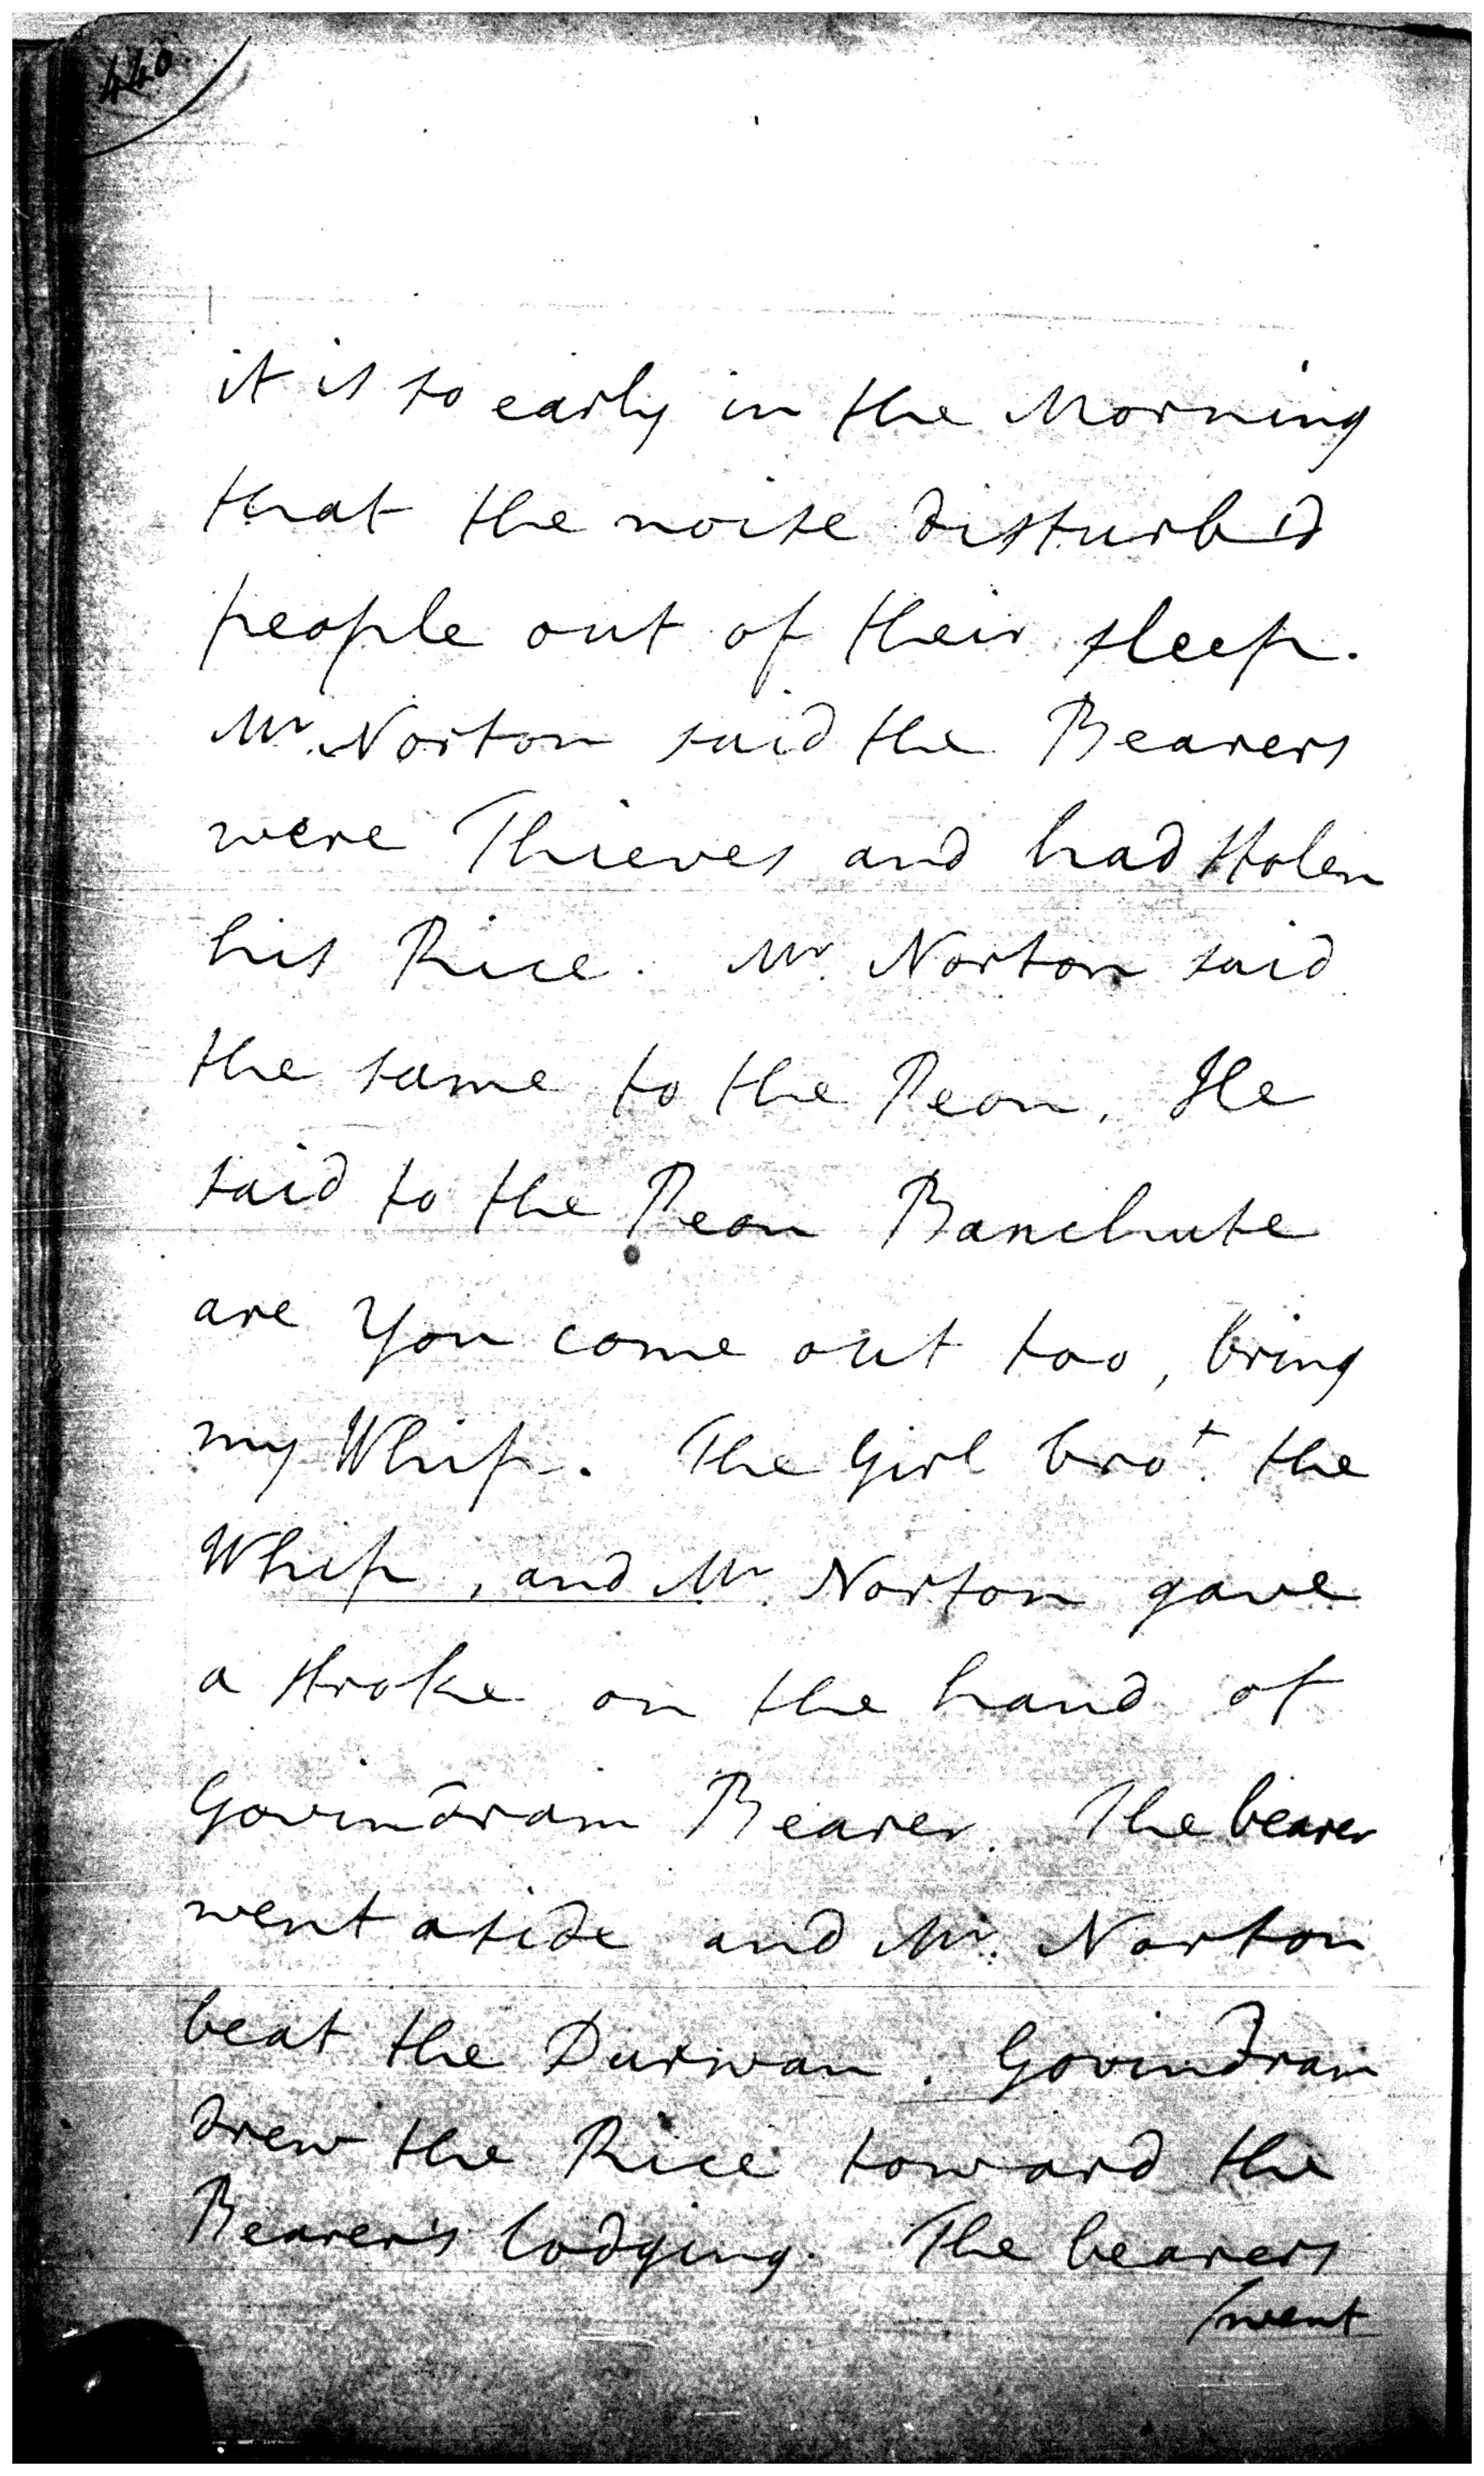 440
it is so early in the Morning
that the noise disturb'd
people out of their sleep.
Mr. Norton said the Bearers
were Thieves and had stolen
his Rice. Mr. Norton said
the same to the Peon. He
said to the Peon Banchute
are You come out too, bring
my Whip. The Girl bro.t the
Whip, and Mr. Norton gave
a stroke on the hand of
Govindram Bearer. The bearer
went aside and Mr. Norton
beat the Durwan. Govindram
drew the Rice toward the
Bearer's lodging. The bearers
/went